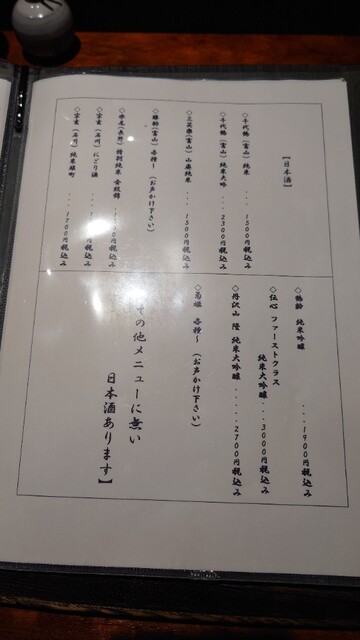 【日本酒】
◇千代鶴（富山）純米 ・・・・1500円税込み
◇千代鶴（富山）純米大吟 ・・・2300円税込み
◇三笑楽（富山）山廃純米 ・・・1500円税込み
◇勝駒（富山）各種〜 （お声かけ下さい）
（長野）特別純米 金紋錦
◇宗玄（石川）にごり酒
◇宗玄（石川）純米雄町 ・・・1700円税込み
◇鶴齢 純米吟醸 ・・・・1900円税込み
◇伝心 ファーストクラス
純米大吟醸・・・3000円税込み
◇丹沢山 隆 純米大吟醸 ・・・・・2700円税込み
◇菊姫 各種〜 （お声かけ下さい）
その他メニューに無い
日本酒あります】